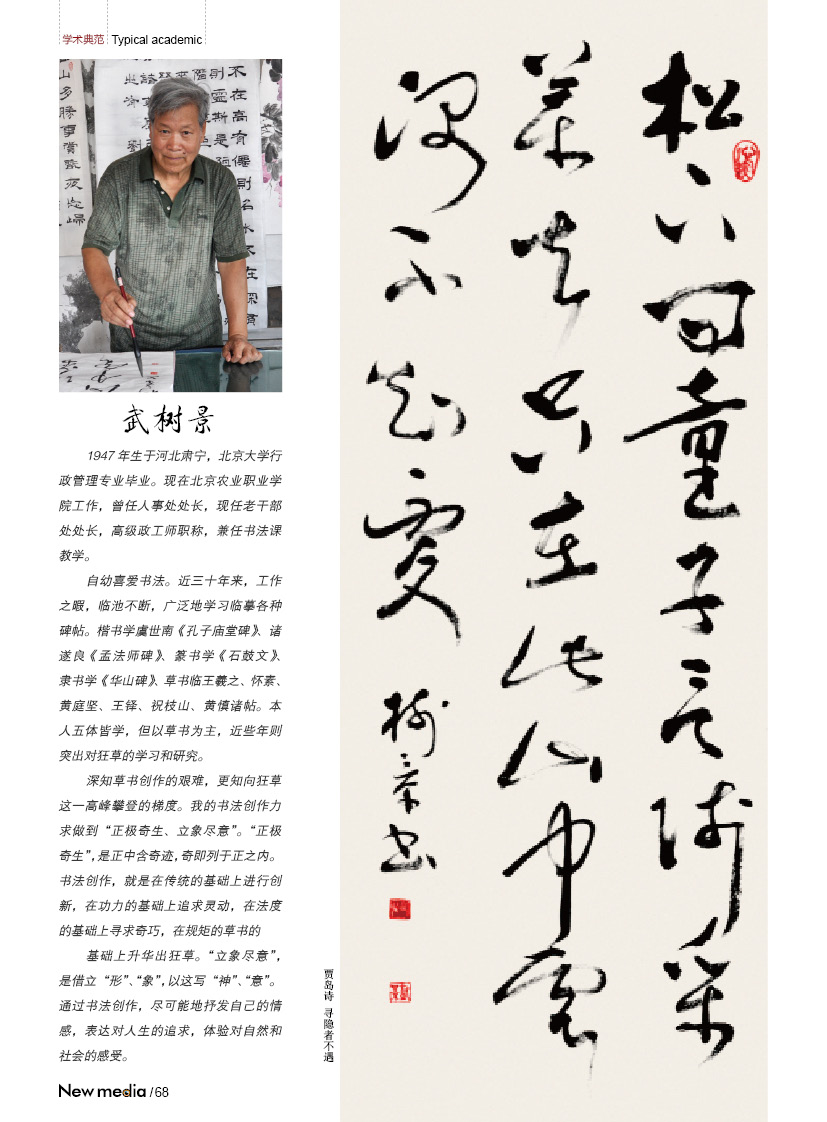 学术典范 Typical academic
武树景
1947年生于河北肃宁，北京大学行
政管理专业毕业。现在北京农业职业学
院工作，曾任人事处处长，现任老干部
处处长，高级政工师职称，兼任书法课
教学。
自幼喜爱书法。近三十年来，工作
之暇，临池不断，广泛地学习临摹各种
碑帖。楷书学虞世南《孔子庙堂碑》、诸
遂良《孟法师碑》、篆书学《石鼓文》、
隶书学《华山碑》、草书临王羲之、怀素、
黄庭坚、王铎、祝枝山、黄慎诸帖。本
人五体皆学，但以草书为主，近些年则
突出对狂草的学习和研究。
深知草书创作的艰难，更知向狂草
这一高峰攀登的梯度。我的书法创作力
求做到“正极奇生、立象尽意”。“正极
奇生”，是正中含奇迹，奇即列于正之内。
书法创作，就是在传统的基础上进行创
新，在功力的基础上追求灵动，在法度
的基础上寻求奇巧，在规矩的草书的
基础上升华出狂草。“立象尽意”，
是借立“形”、“象”，以这写“神”、“意”。
通过书法创作，尽可能地抒发自己的情
感，表达对人生的追求，体验对自然和
社会的感受。
松下问童子言师采
药去只在此山中云
深不知处
树景书
贾岛诗 寻隐者不遇
New media /68